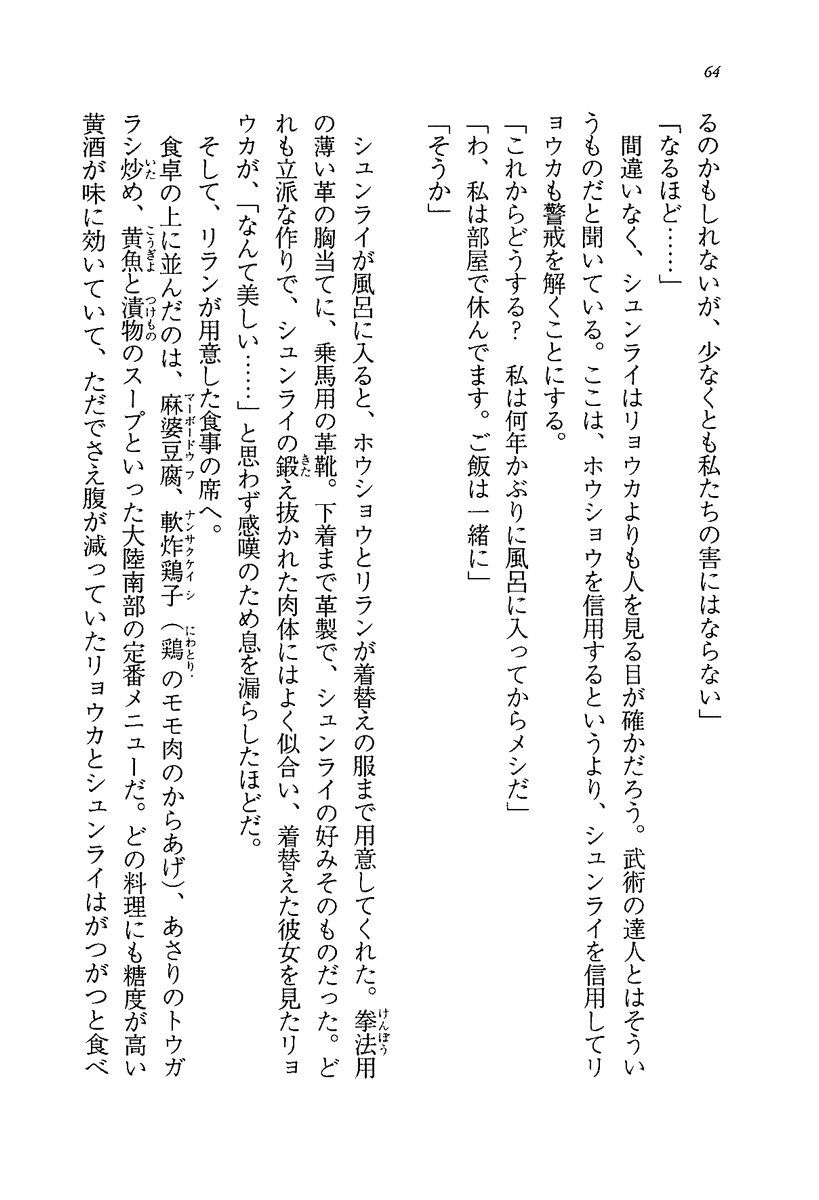 64
るのかもしれないが、少なくとも私たちの害にはならない」
「なるほど……」
間違いなく、シュンライはリョウカよりも人を見る目が確かだろう。武術の達人とはそうい
うものだと聞いている。ここは、ホウショウを信用するというより、シュンライを信用してリ
ョウカも警戒を解くことにする。
「これからどうする？　私は何年かぶりに風呂に入ってからメシだ」
「わ、私は部屋で休んでます。ご飯は一緒に」
「そうか」
シュンライが風呂に入ると、ホウショウとリランが着替えの服まで用意してくれた。拳法用
の薄い革の胸当てに、乗馬用の革靴。下着まで革製で、シュンライの好みそのものだった。ど
れも立派な作りで、シュンライの鍛え抜かれた肉体にはよく似合い、着替えた彼女を見たリョ
ウカが、「なんて美しい……」と思わず感嘆のため息を漏らしたほどだ。
そして、リランが用意した食事の席へ。
食卓の上に並んだのは、麻婆豆腐、軟炸鶏子（鶏のモモ肉のからあげ）、あさりのトウガ
ラシ炒め、黄魚と漬物のスープといった大陸南部の定番メニューだ。どの料理にも糖度が高い
黄酒が味に効いていて、ただでさえ腹が減っていたリョウカとシュンライはがつがつと食べ